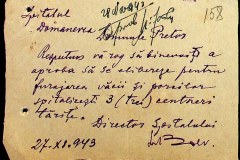 158
28 Nov 943
Spitalul
Domanevca
Domnule Pretor
Respectuos vă rog să binevoiți a
aproba să se elibereze pentru
furajarea vacii și porcilor
spitalicești 3 (trei) centneri
tărîțe.
Directorul Spitalului
27.XI.943